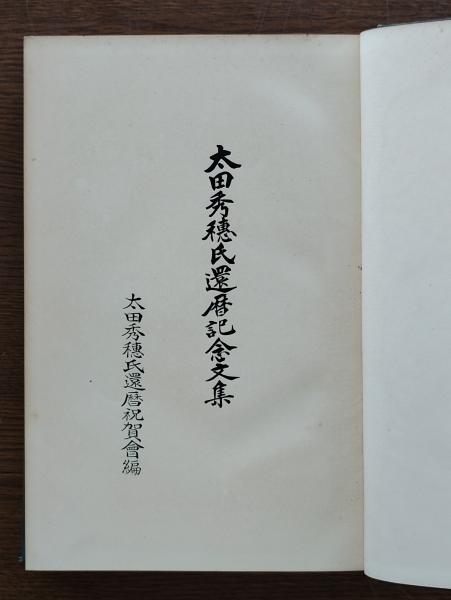 太田秀穗氏還曆記念文集
太田秀穗氏還曆祝賀會編